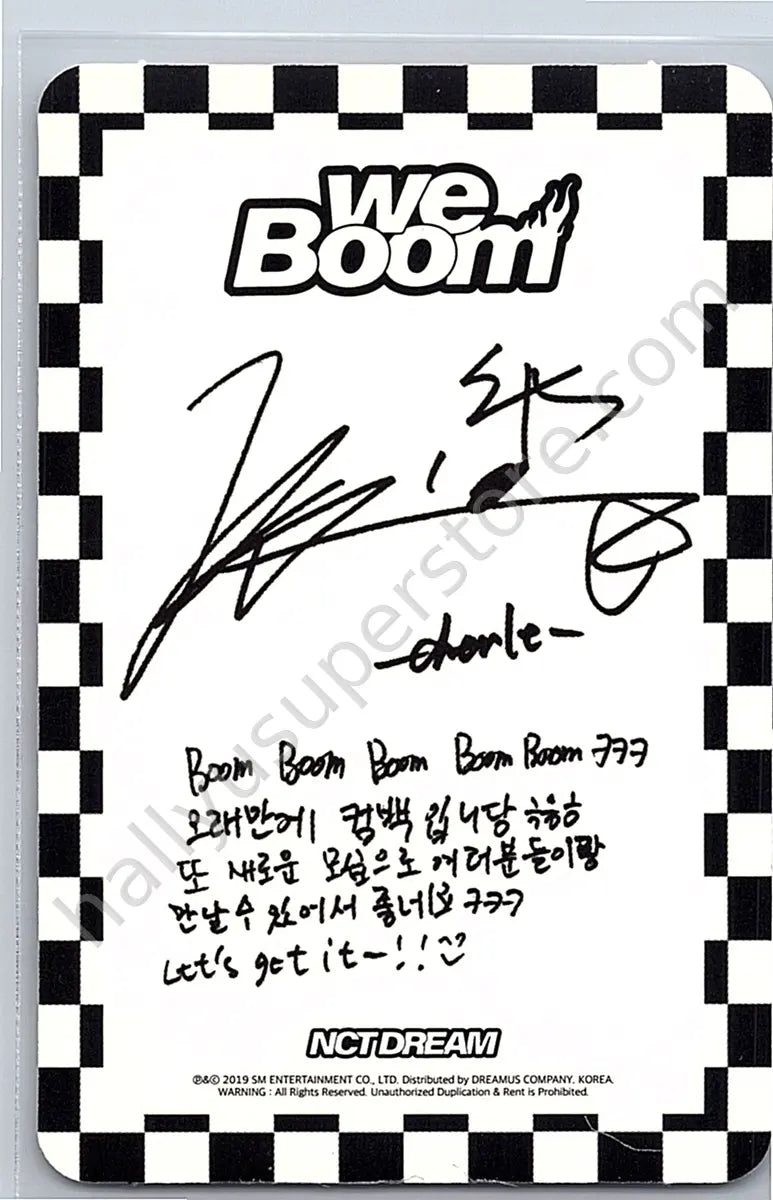 we
Boom
-chenle-
Boom Boom Boom Boom Boom ㅋㅋㅋ
오래만에 컴백 입니당 ㅎㅎㅎ
또 새로운 모습으로 여러분들이랑
만날 수 있어서 좋네요 ㅋㅋㅋ
Let's get it~!!
NCT DREAM
℗&© 2019 SM ENTERTAINMENT CO., LTD. Distributed by DREAMUS COMPANY. KOREA.
WARNING : All Rights Reserved. Unauthorized Duplication & Rent is Prohibited.
hallyusuperstore.com